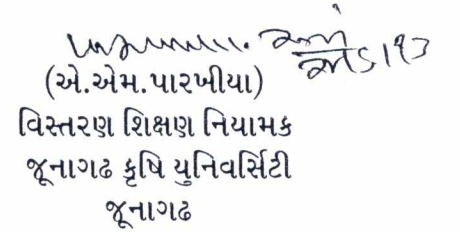 (એ.એમ.પારખીયા)
વિસ્તરણ શિક્ષણ નિયામક
જૂનાગઢ કૃષિ યુનિવર્સિટી
જૂનાગઢ